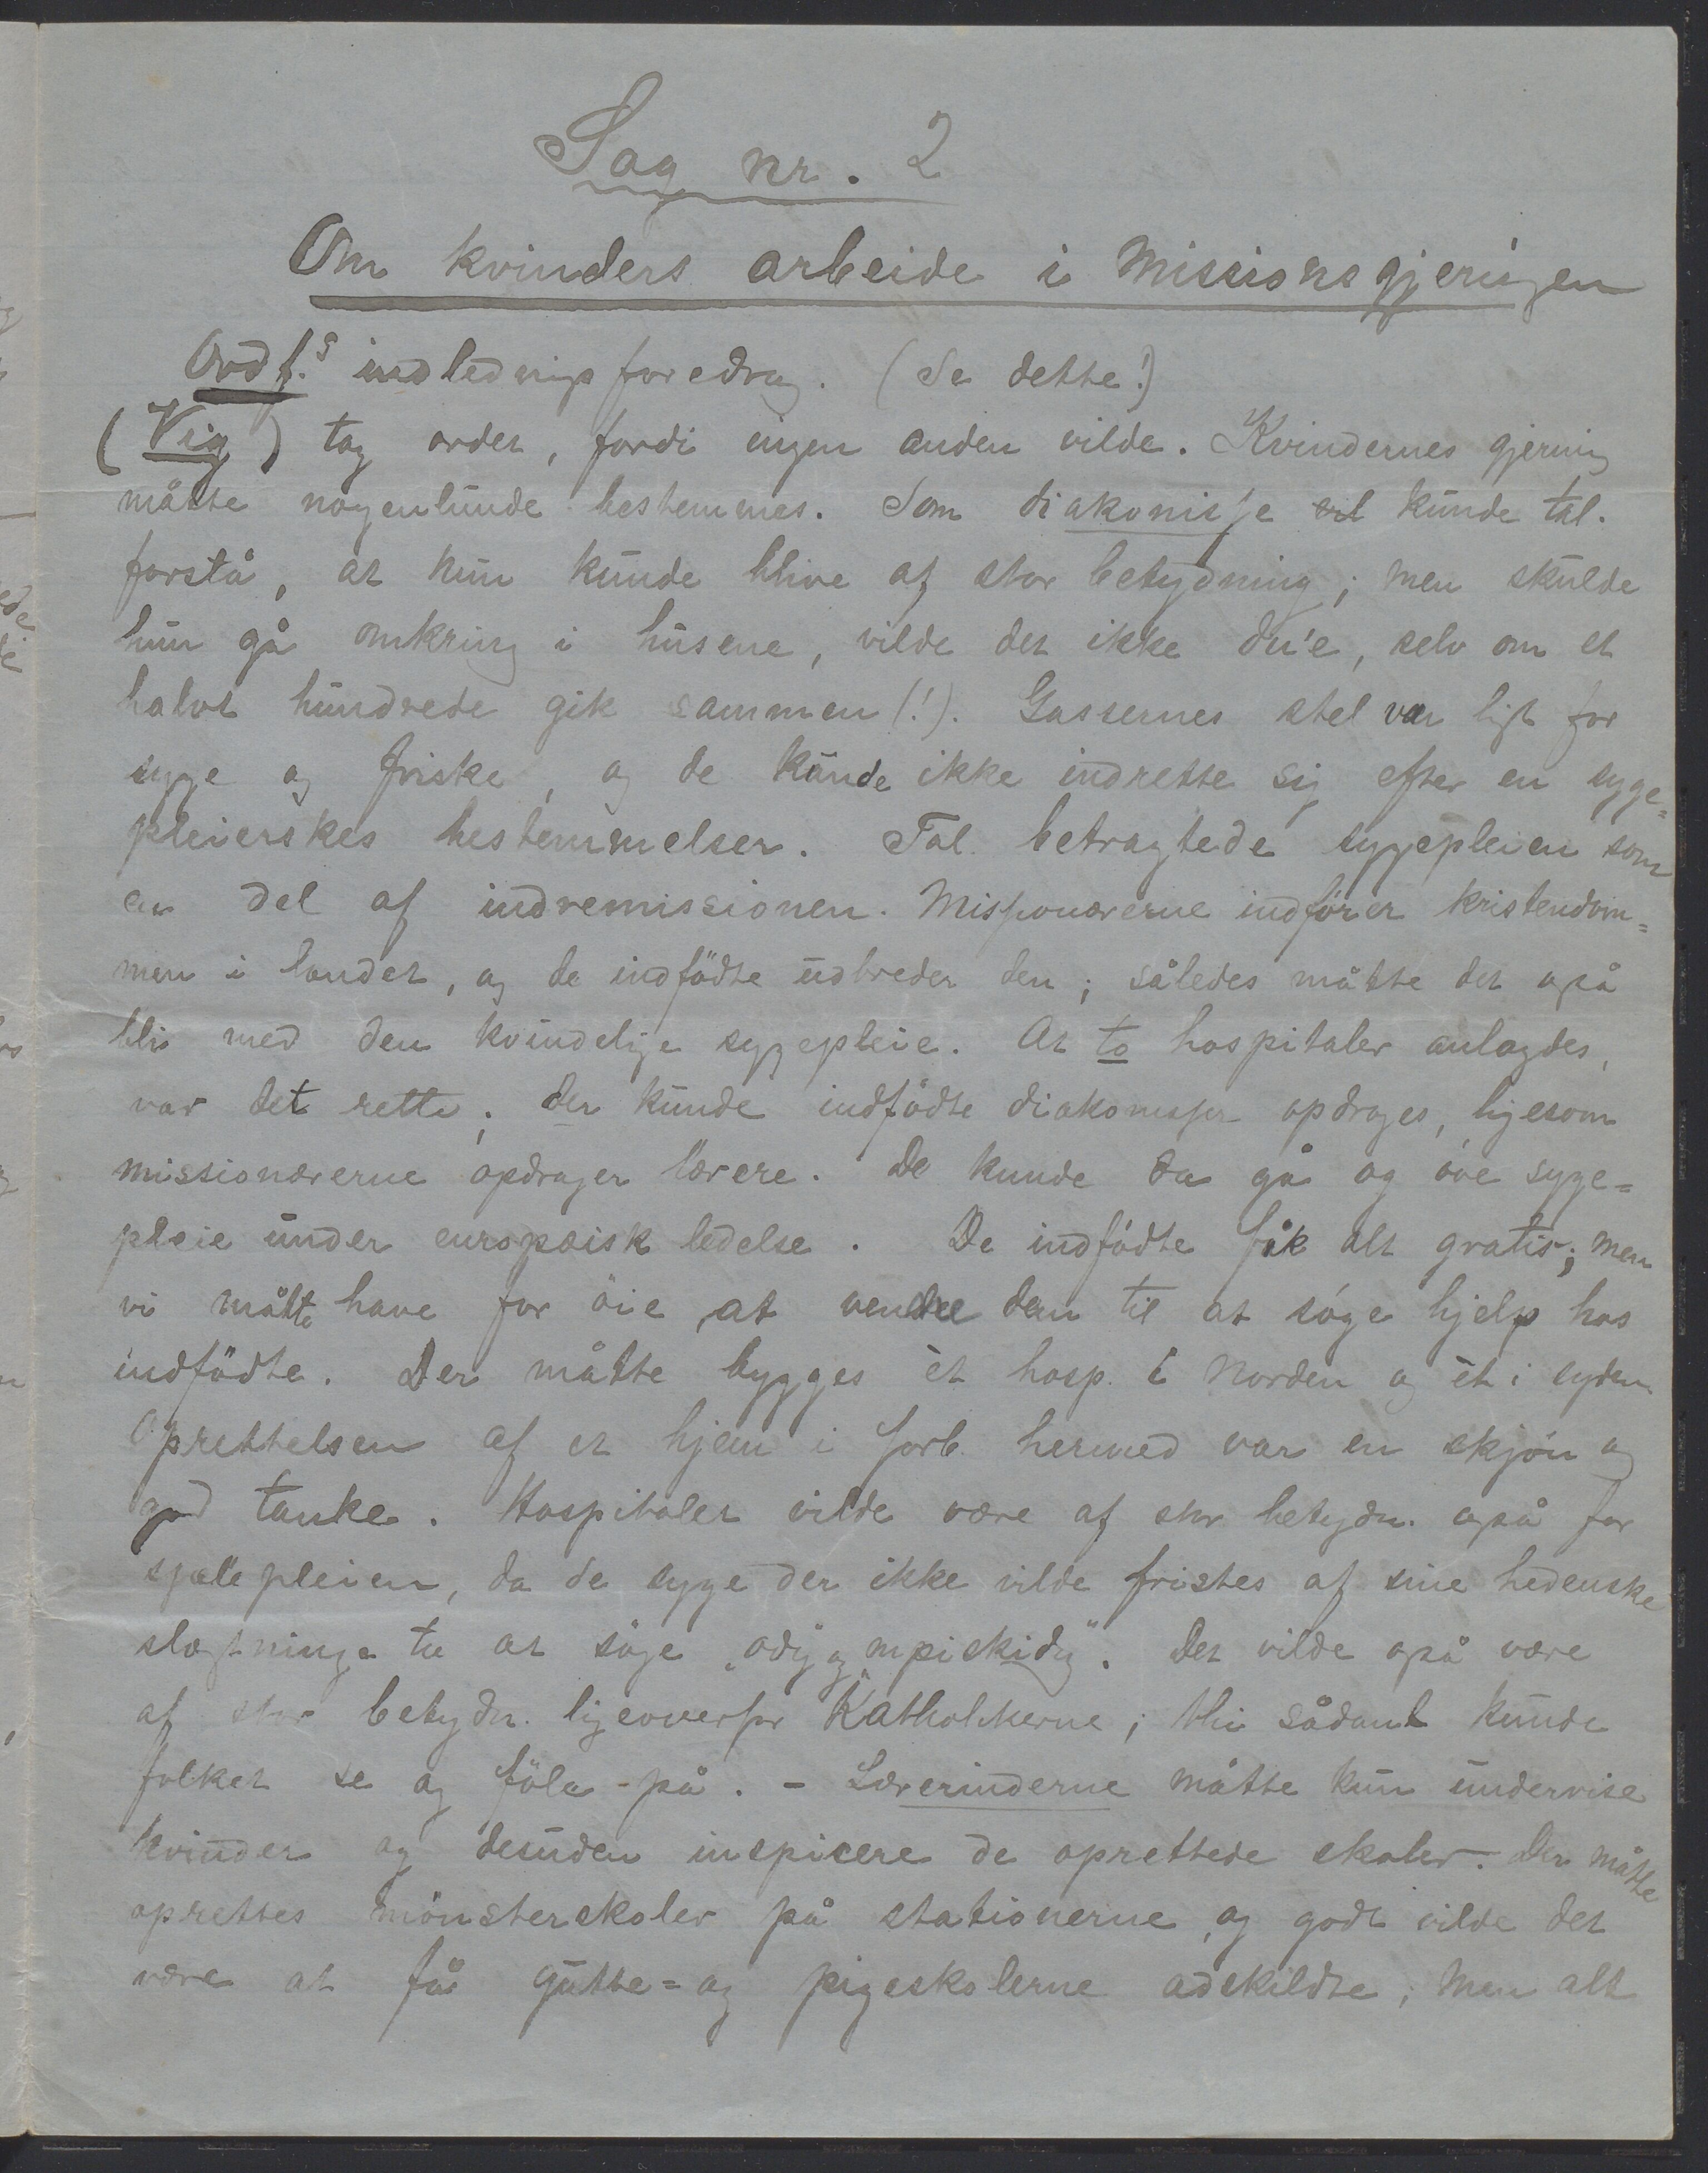 Sag nr. 2
Om kvinders arbeide i Missionsgjeringen
Ordf.s indlednigsforedrag. (Se dette!)
(Vig) tog ordet, fordi ingen anden vilde. Kvindernes gjerning
måtte nogenlunde bestemmes. Som diakonisse vil kunde tal.
forstå, at hun kunde blive af stor betydning; men skulde
hun gå omkring i husene, vilde det ikke du'e, selv om et
halvt hundrede gik sammen (!). Gassernes stel var ligt for
syge og friske, og de kunde ikke indrette sig efter en syge=
pleierskes bestemmelser. Tal. betragtede sygepleien som
en del af indremissionen. Missionærerne indfører kristendom=
men i landet, og de indfødte udbreder den; således måtte det også
bli med den kvindelige sygepleie. At to hospitaler anlagdes,
var det rette; der kunde indfødte diakonisser opdrages, ligesom
missionærerne opdrager lærere. De kunde da gå og øve syge=
pleie under europæisk ledelse. De indfødte fik alt gratis; men
vi måtte have for øie, at vende dem til at søge hjelp hos
indfødte. Der måtte bygges ét hosp. i Norden og ét i syden.
Oprettelsen af et hjem i forb. hermed var en skjøn og
god tanke. Hospitalet vilde være af stor betydn. også for
sjælepleien, da de syge der ikke vilde fristes af sine hedenske
slægtninge til at søge "ody og mpiskidy". Det vilde også være
af stor betydn. ligeoverfor Katholikerne; thi sådant kunde
folket se og føle på. - Lærerinderne måtte kun undervise
kvinder og desuden inspicere de oprettede skoler. Der måtte
oprettes mønsterskoler på stationerne, og godt vilde det
være at få gutte= og pigeskolerne adskildte; men alt